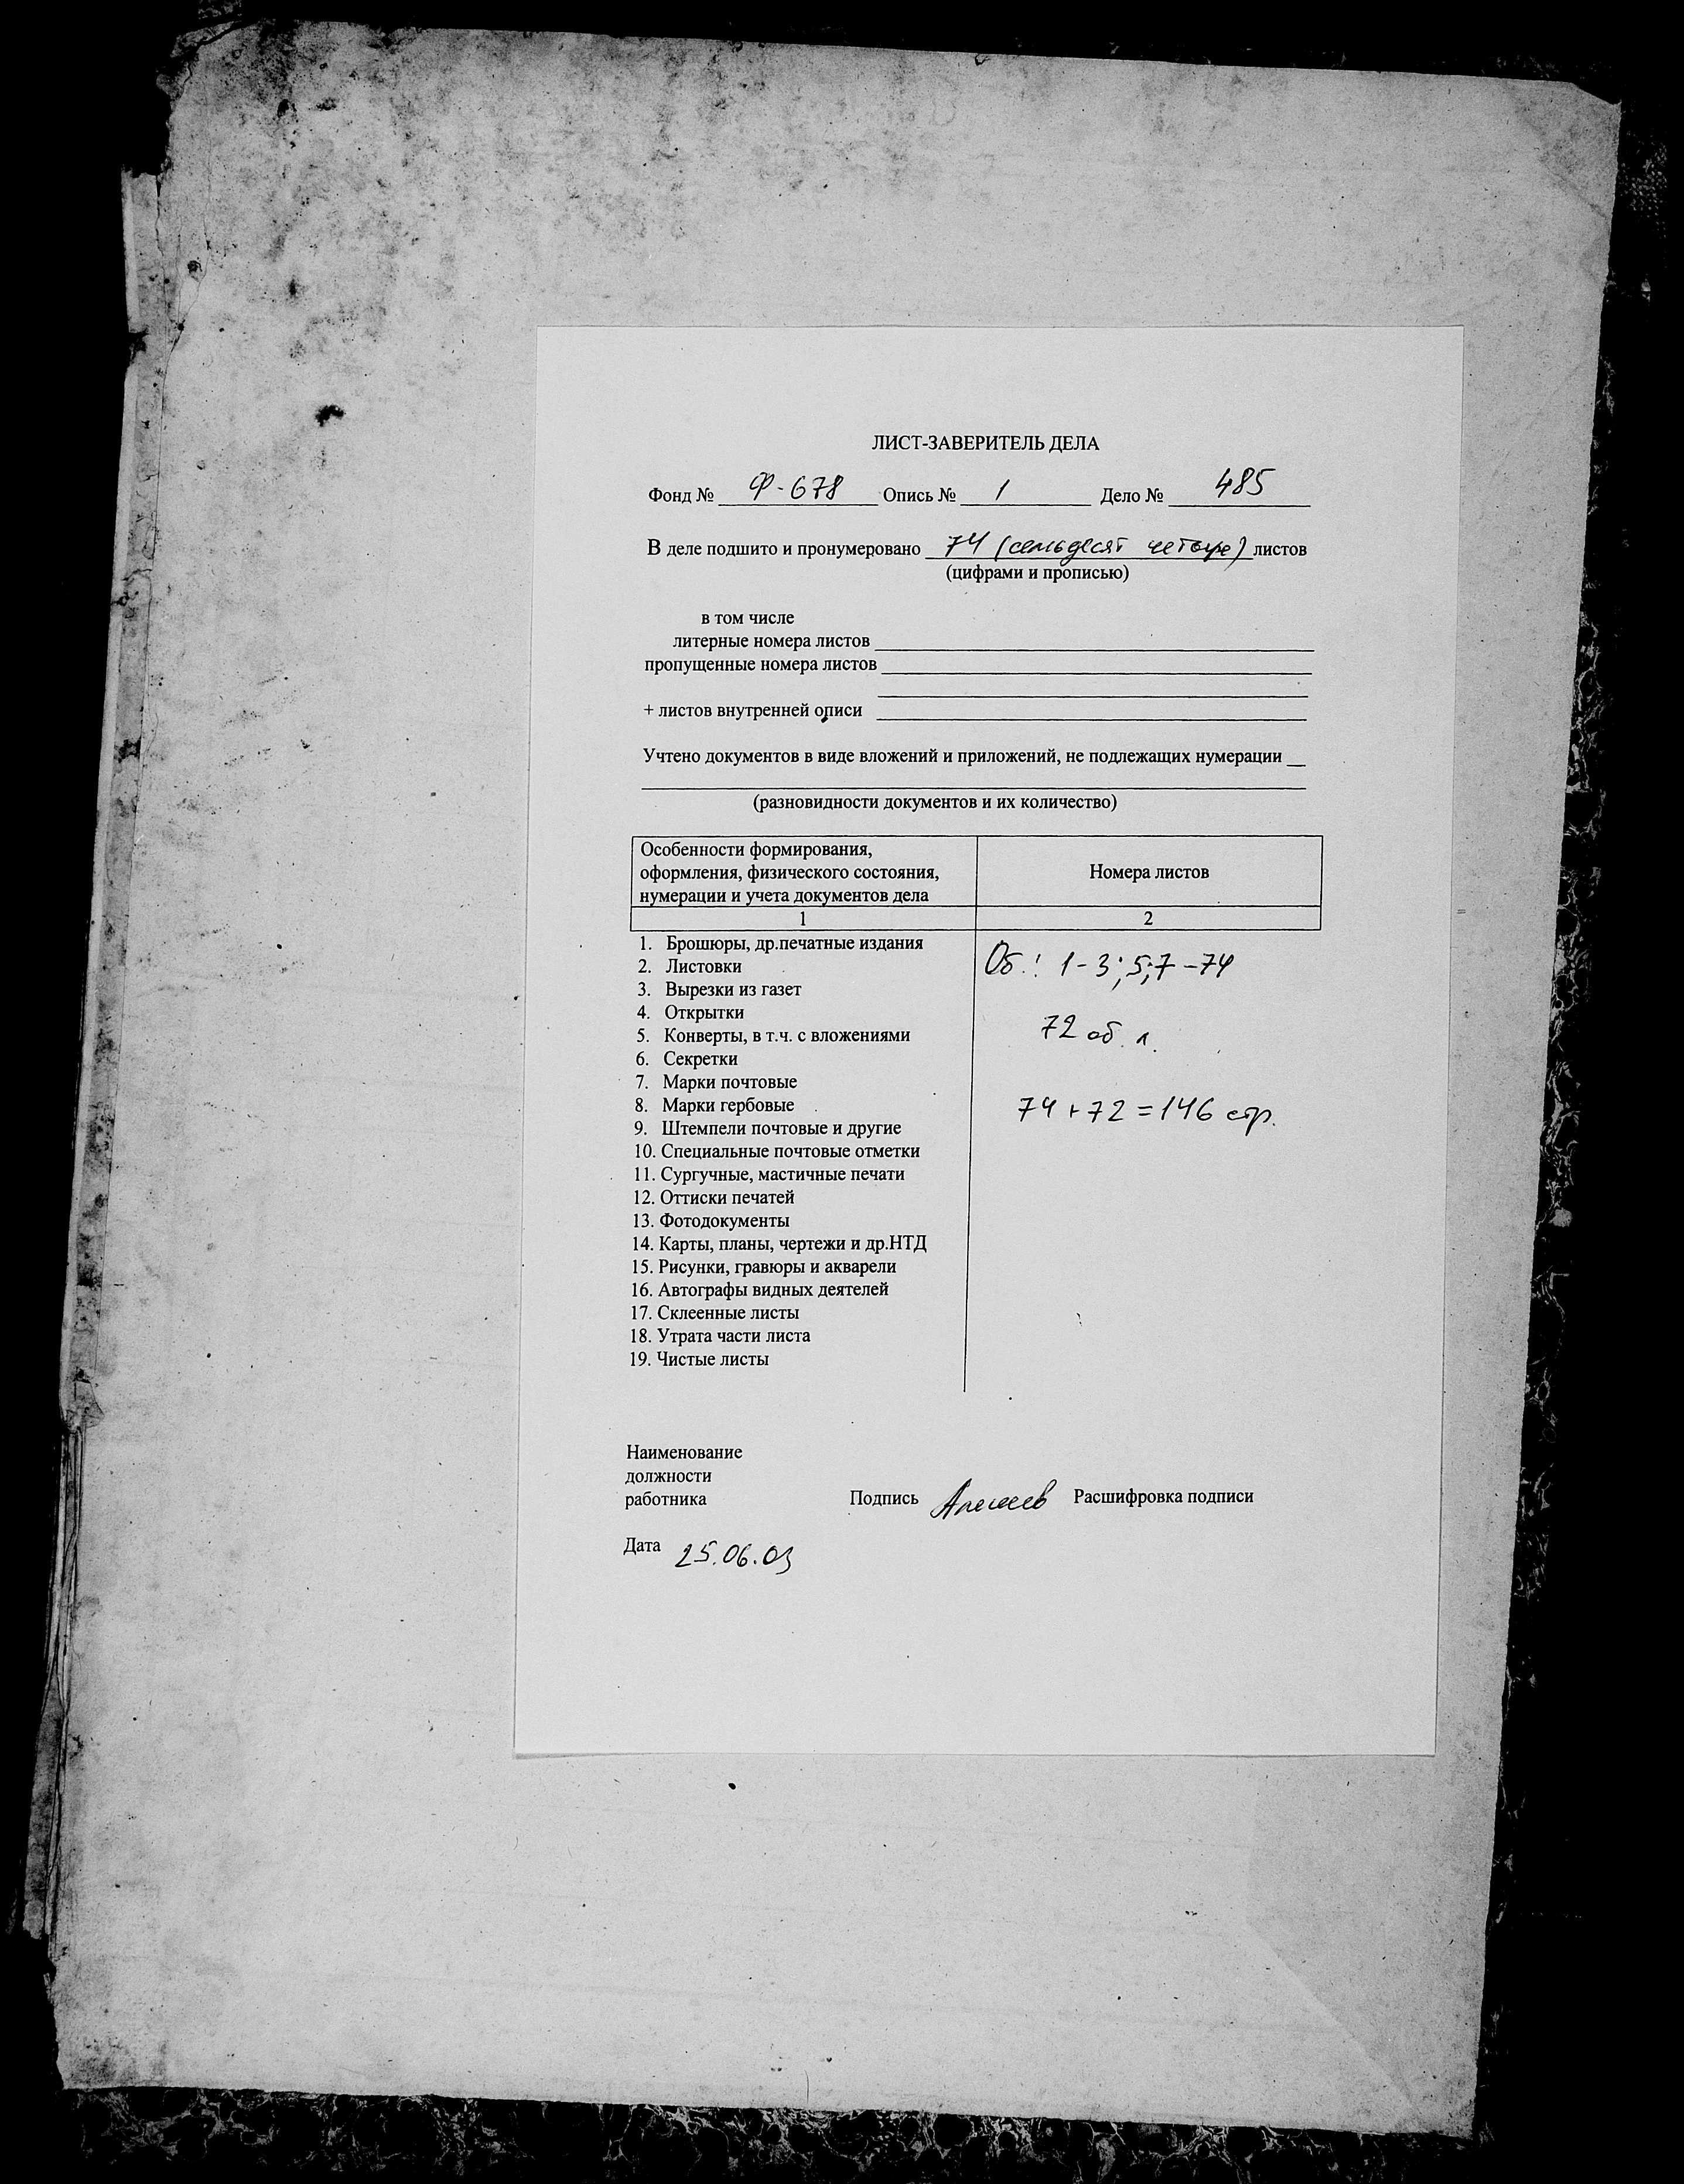 ЛИСТ-ЗАВЕРИТЕЛЬ ДЕЛА
Фонд № Ф-678 Опись № 1 Дело № 485
В деле подшито и пронумеровано 74 (семьдесят четыре) листов
(цифрами и прописью)
в том числе
литерные номера листов
пропущенные номера листов
+ листов внутренней описи
Учтено документов в виде вложений и приложений, не подлежащих нумерации
(разновидности документов и их количество)
Особенности формирования,
оформления, физического состояния,
нумерации и учета документов дела
Номера листов
1 2
1. Брошюры, др.печатные издания
2. Листовки
3. Вырезки из газет
4. Открытки
5. Конверты, в т.ч. с вложениями
6. Секретки
7. Марки почтовые
8. Марки гербовые
9. Штемпели почтовые и другие
10. Специальные почтовые отметки
11. Сургучные, мастичные печати
12. Оттиски печатей
13. Фотодокументы
14. Карты, планы, чертежи и др.НТД
15. Рисунки, гравюры и акварели
16. Автографы видных деятелей
17. Склеенные листы
18. Утрата части листа
19. Чистые листы
Об.: 1-3; 5; 7-74
72 об. л.
74 + 72 = 146 стр.
Наименование
должности
работника
Подпись Расшифровка подписи
Дата 25.06.03